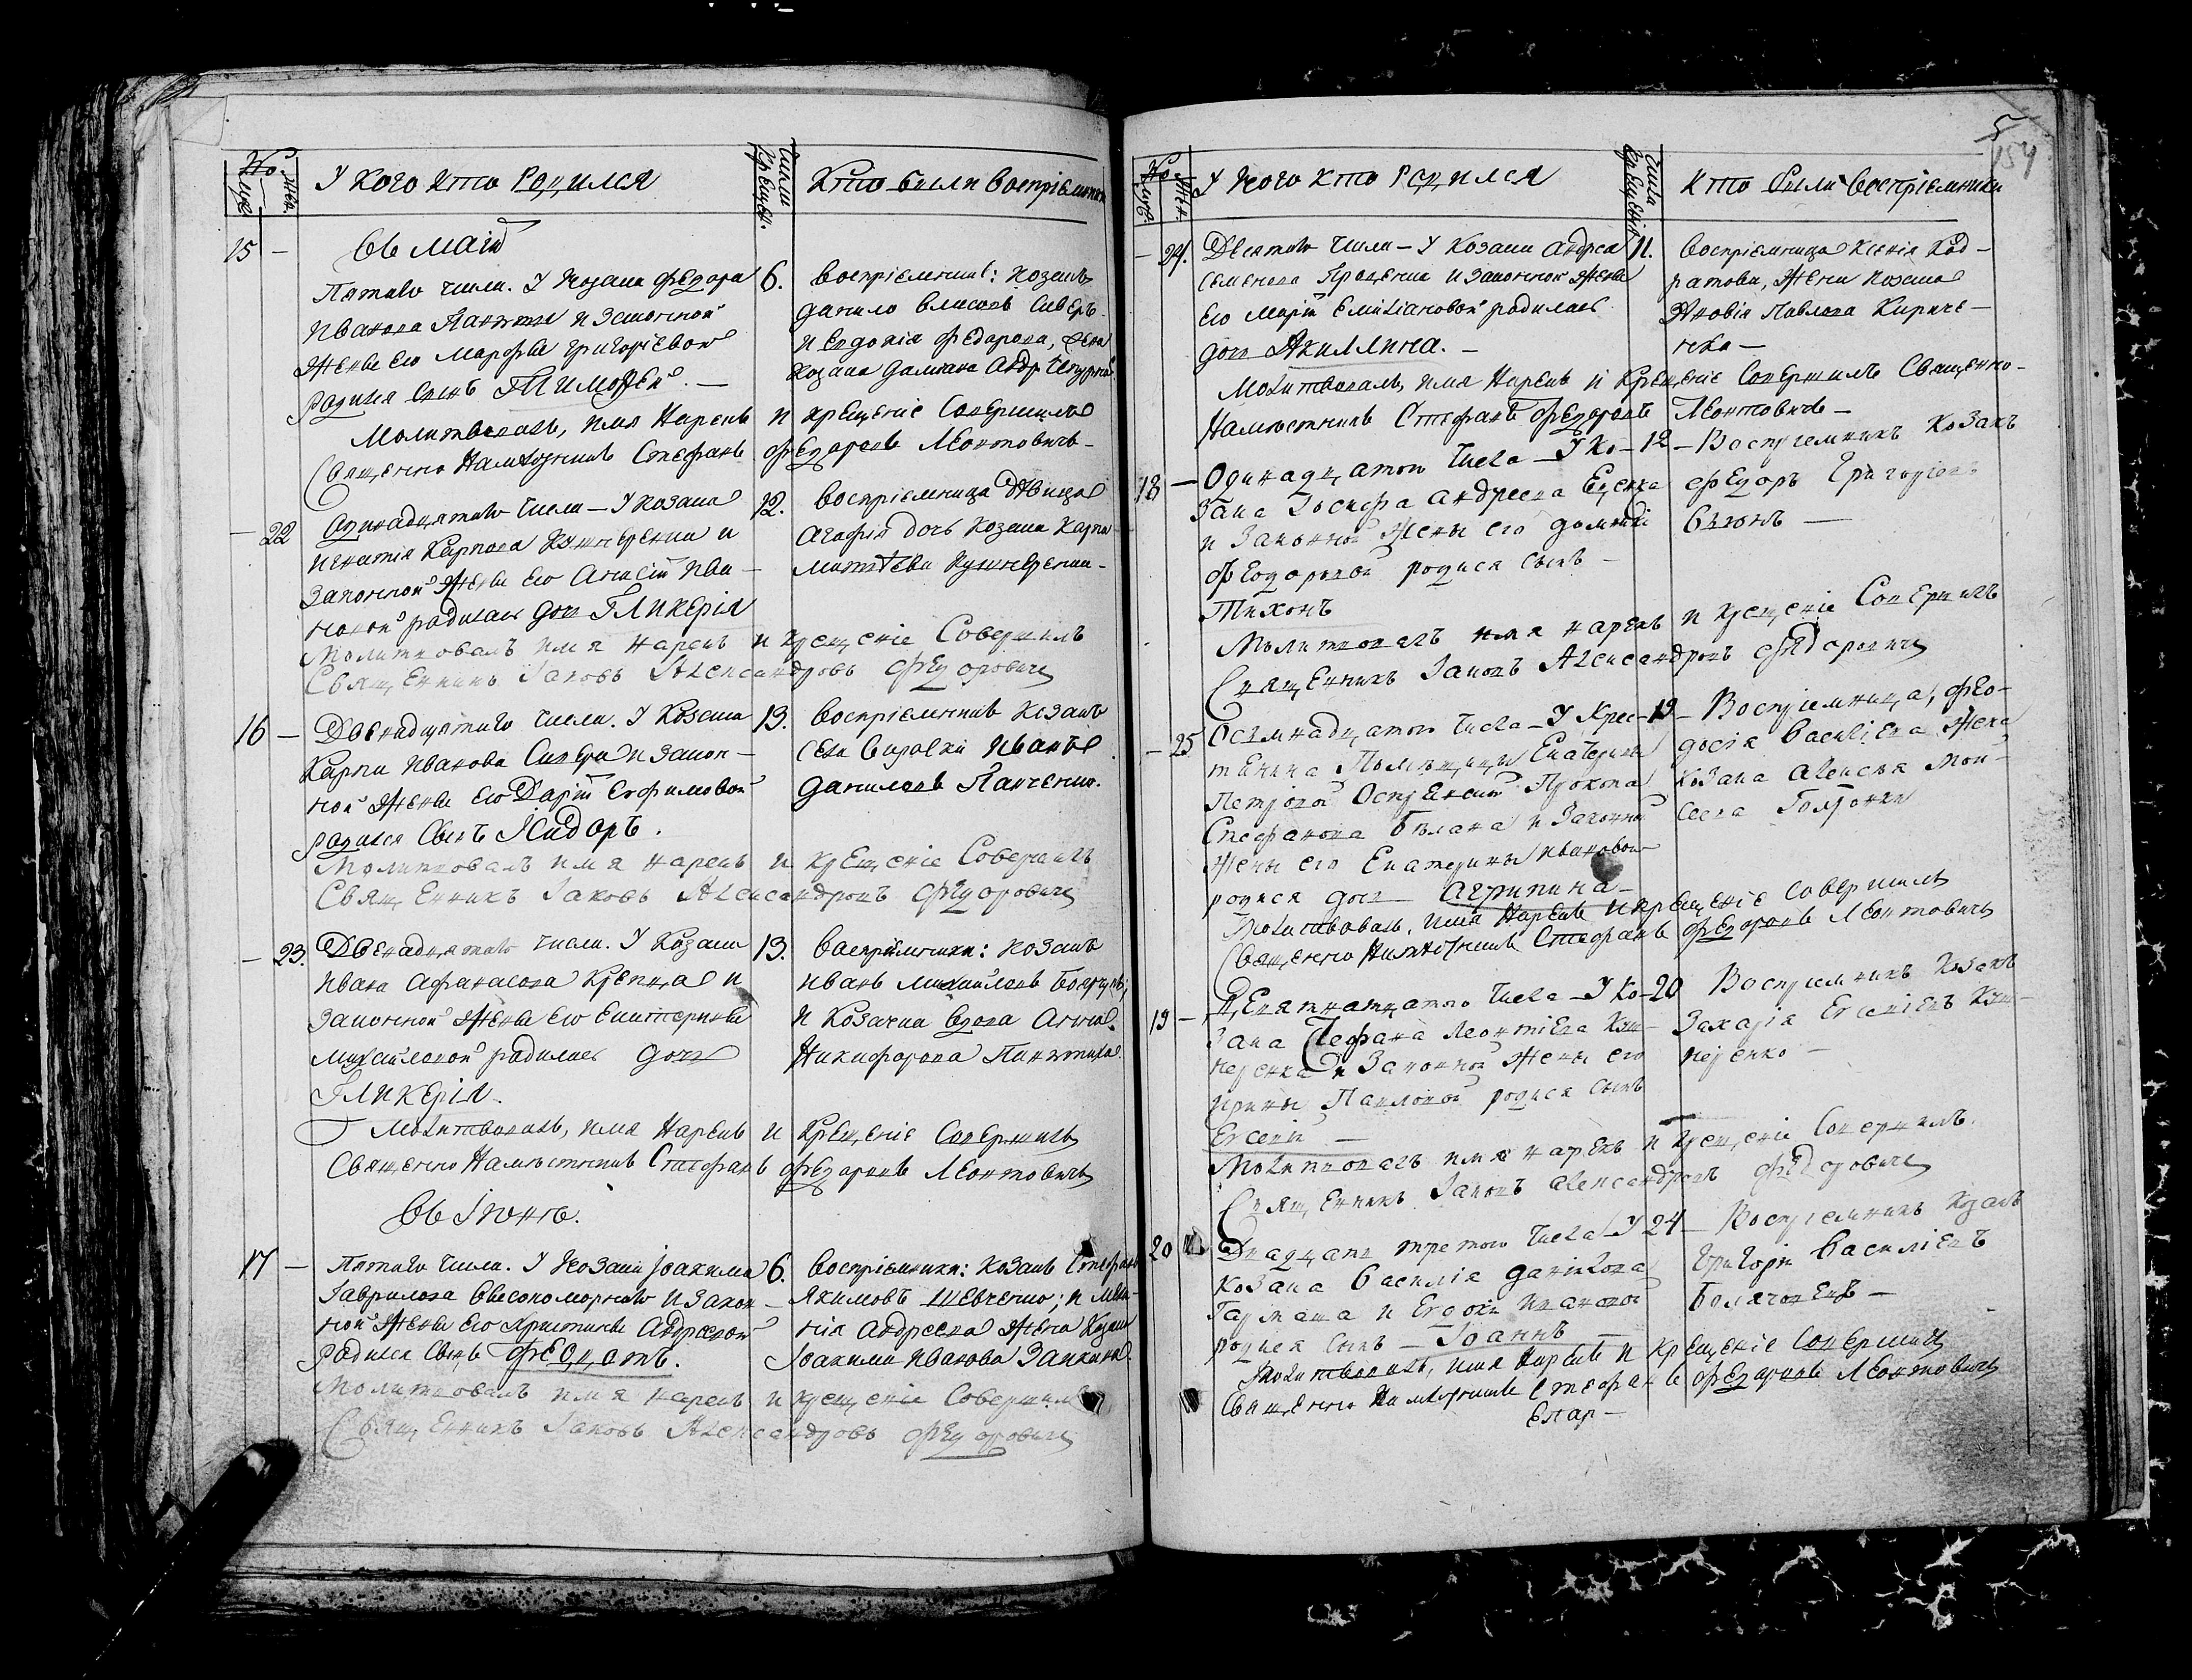 №
Муж.
Жен.
У кого кто родился
Числа крещен.
Кто были воспріемники
15 –
Въ маіи
Пятаго числа. У козака Федора
Иванова и законной
жены его Марфы Григоріевой
родился сынъ Тимофей. –
6. воспріемники: козакъ
данило власовъ Сиверъ
и евдокія Федорова, жена
козака даміана
Молитвовалъ, имя нарекъ и крещеніе совершилъ
Священно Намѣстникъ Стефанъ Федоровъ Леонтовичъ –
– 22
Одинадцятаго числа – У козака
игнатія Карпова Кушнеренка и
законной жены его Анисіи Ива –
новой родилась дочь Гликерія
12. воспріемница дѣвица
агафія дочь козака Карпа
матѣева Кушнеренка –
Молитвовалъ имя нарекъ и крещеніе Совершилъ
Священникъ Іаковъ Александровъ Федоровичъ
16 –
Двенадцятаго числа. У козака
Карпа иванова Сивера и закон –
ной жены его Даріи Ефимовой
родился сынъ Ісидоръ.
13. воспріемникъ козакъ
села Иванъ
даниловъ Панченко.
Молитвовалъ имя нарекъ и крещеніе Совершилъ
Священникъ Іаковъ Александровъ Федоровичъ
– 23.
Двенадцятаго числа. У козака
ивана афанасова и
законной жены его Екатерины
михайловой родилась дочь
Гликерія.
13. воспріемники: козакъ
иванъ михайловъ
и козачка вдова Анна
Никифорова
Молитвовалъ, имя нарекъ и крещеніе совершилъ
Священно Намѣстникъ Стефанъ Федоровъ Леонтовичъ
Въ Іюнѣ.
17 –
Пятаго числа. У козака іоакима
Гаврилова и закон –
ной жены его христины Андреевой
родился сынъ Феодотъ.
6. воспріемники: козакъ Стефанъ
Якимовъ Шевченко; и
Андреева жена козака
іоакима иванова
Молитвовалъ имя нарекъ и крещеніе Совершилъ
Священникъ Іаковъ Александровъ Федоровичъ
5
154
№
Муж.
Жен.
У кого кто родился
Числа крещенія
Кто были воспріемники
– 24.
Девятаго числа – У козака андрея
семенова и законной жены
его Маріи Емиліановой родилась
дочь Акиллина. –
11. воспріемница ксенія Код –
ратова, жена козака
Зѣновія Павлова Кириче –
нка –
Молитвовалъ, имя нарекъ и крещеніе совершилъ Священно –
Намѣстникъ Стефанъ Федоровъ Леонтовичъ –
18 –
Одинадцатого числа – У ко –
зака Іосифа андреева Еценка
и законной жены его домникіи
Феодоровой родися сынъ –
Тихонъ
12 – Воспріемникъ козакъ
Федоръ Григоріевъ
Бѣлонъ –
Молитвовалъ имя нарекъ и крещеніе Совершилъ
Священникъ Іаковъ Александровъ Федоровичъ
– 25
Осимнадцатого числа – У крес –
тянина Помѣщицы Екатерины
Петровой Прокопа
Стефанова Бѣлана и законной
жены его Екатерины ивановой
родися дочь – Агрипина –
19 – Воспріемница, Фео –
досія Василіева жена
козака алексѣя Мои –
сеева
Молитвовалъ, имя нарекъ и крещеніе совершилъ
Священно Намѣстникъ Стефанъ Федоровъ Леонтовичъ
19 –
Девятнатцатого числа – У ко –
зака Стефана Леонтіева Куш –
неренка и законной жены его
ирины Павловой родися сынъ
Евсевій –
20 Воспріемникъ козакъ
Захарія Евсевіевъ Куш –
неренко –
Молитвовалъ имя нарекъ и крещеніе Совершилъ.
Священникъ Іаковъ александровъ Федоровичъ
20
Двадцать третого числа – У
козака Василія данілова
и Евдокіи ивановой
родися сынъ – Іоаннъ –
24 – Воспріемникъ козакъ
Григорій Василіевъ
Молитвовалъ, имя нарекъ и крещеніе совершилъ
Священно Намѣстникъ Стефанъ Федоровъ Леонтовичъ